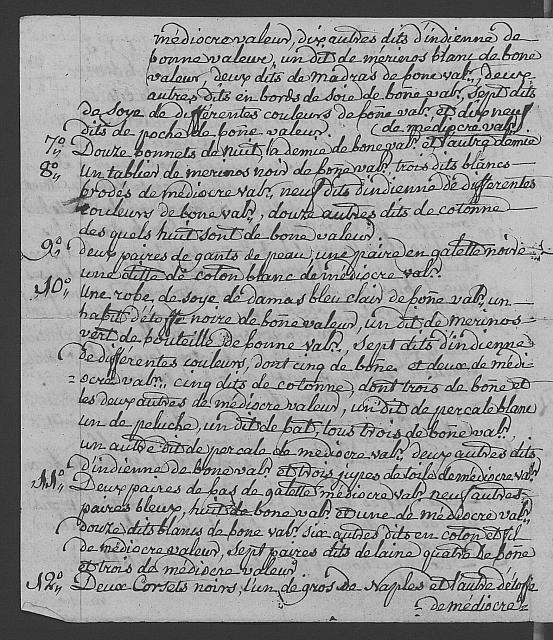 médiocre valeur, dix autres dits d'indienne de
bonne valeur, un dit de mérinos blanc de bone
valeur, deux dits de madras de bone val.r, deux
autres dits en bords de soie de bone val.r, sept dits
de soye de differentes couleurs de bone val.r et dix neuf
dits de poche de bone valeur. (de médiocre val.r
7.o Douze bonnets de nuit, la demie de bone val.r et l'autre demie
8.o un tablier de merinos noir de bone val.r trois dits blancs
brodés de médiocre val.r, neuf dits d'indienne de differentes
couleurs de bone val.r, douze autres dits de cotonne
desquels huit sont de bone valeur
9.o deux paires de gants de peau, une paire en galette noire
une ditte de coton blanc de médiocre val.r
10.o une robe de soye de damas bleu clair de bone val.r un
habit d'étoffe noire de bone valeur, un dit de merinos
vert de bouteille de bonne val.r, sept dits d'indienne
de differentes couleurs, dont cinq de bone et deux de médi-
ocre val.r, cinq dits de cotonne, dont trois de bone et
les deux autres de médiocre valeur, un dit de percale blanc
un de peluche, un dit de bat, tous trois de bone val.r,
un autre dit de percale de médiocre val.r deux autres dits
d'indienne de bone val.r et trois jupes de toile de médiocre val.r
11.o Deux paires de bas de galette médiocre val.r neuf autres
paires bleux, huit de bone val.r et une de médiocre val.r
douze dits blancs de bone val.r six autres dits en coton et fil
de médiocre valeur, sept paires dits de laine quatre de bone
et trois de médiocre valeur
12.o Deux Corsets noirs, l'un de gros de Naples et l'autre d'étoffe
de médiocre